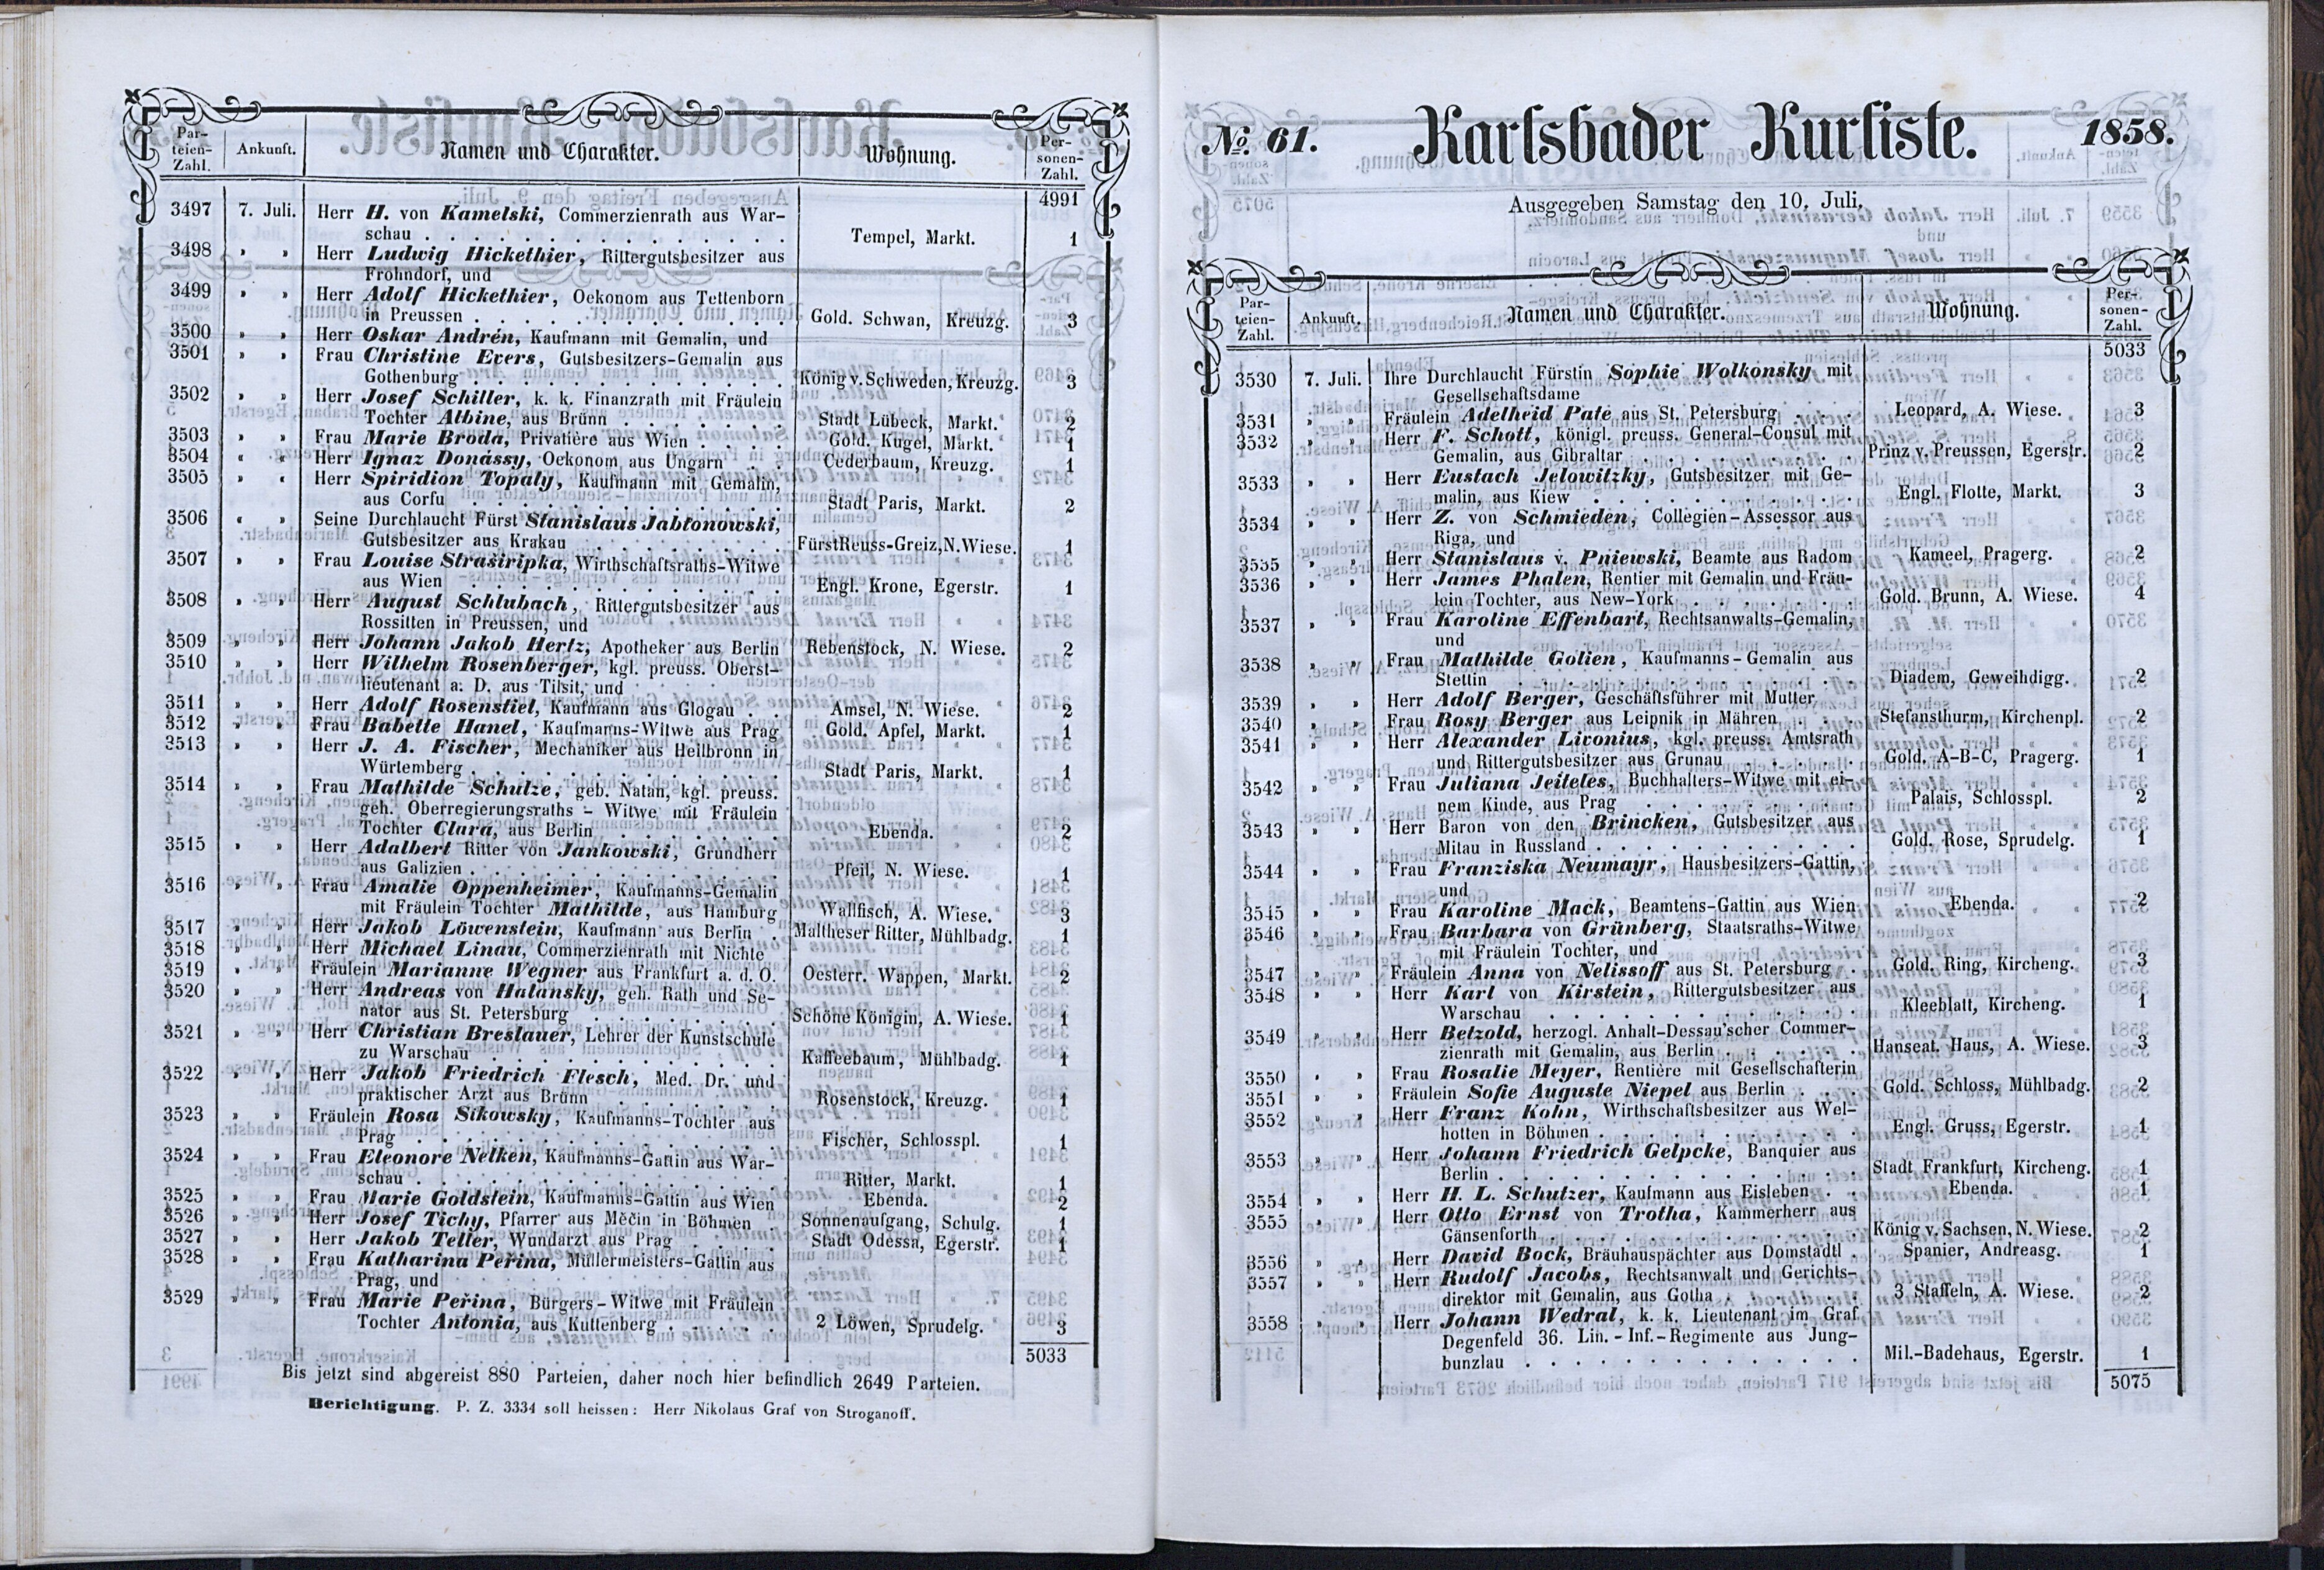 Par-
teien-
Zahl.
Ankunft.
Namen und Charakter.
Wohnung.
Per-
sonen-
Zahl.
4991
3497 7. Juli. Herr H. von Kamelski, Commerzienrath aus War-
schau . . . Tempel, Markt. 1
3498 » » Herr Ludwig Hickethier, Rittergutsbesitzer aus
Frohndorf, und
3499 » » Herr Adolf Hickethier, Oekonom aus Tettenborn
in Preussen . . . Gold. Schwan, Kreuzg. 3
3500 » » Herr Oskar Andrén, Kaufmann mit Gemalin, und
3501 » » Frau Christine Evers, Gutsbesitzers-Gemalin aus
Gothenburg . . . König v. Schweden, Kreuzg. 3
3502 » » Herr Josef Schiller, k. k. Finanzrath mit Fräulein
Tochter Albine, aus Brünn . . . Stadt Lübeck, Markt. 2
3503 » » Frau Marie Broda, Privatière aus Wien . . . Gold. Kugel, Markt. 1
3504 « « Herr Ignaz Donássy, Oekonom aus Ungarn . . Cederbaum, Kreuzg. 1
3505 » « Herr Spiridion Topaly, Kaufmann mit Gemalin,
aus Corfu . . . Stadt Paris, Markt. 2
3506 « » Seine Durchlaucht Fürst Stanislaus Jabłonowski,
Gutsbesitzer aus Krakau . . . Fürst Reuss-Greiz, N. Wiese. 1
3507 » » Frau Louise Straširipka, Wirthschaftsraths-Witwe
aus Wien . . . Engl. Krone, Egerstr. 1
3508 » » Herr August Schlubach, Rittergutsbesitzer aus
Rossitten in Preussen, und
3509 » » Herr Johann Jakob Hertz, Apotheker aus Berlin Rebenstock, N. Wiese. 2
3510 » » Herr Wilhelm Rosenberger, kgl. preuss. Oberst-
lieutenant a. D. aus Tilsit, und
3511 » » Herr Adolf Rosenstiel, Kaufmann aus Glogau . . Amsel, N. Wiese. 2
3512 » » Frau Babette Hanel, Kaufmanns-Witwe aus Prag Gold. Apfel, Markt. 1
3513 » » Herr J. A. Fischer, Mechaniker aus Heilbronn in
Würtemberg . . . Stadt Paris, Markt. 1
3514 » » Frau Mathilde Schulze, geb. Natan, kgl. preuss.
geh. Oberregierungsraths - Witwe mit Fräulein
Tochter Clara, aus Berlin . . . Ebenda. 2
3515 » » Herr Adalbert Ritter von Jankowski, Grundherr
aus Galizien . . . Pfeil, N. Wiese. 1
3516 » » Frau Amalie Oppenheimer, Kaufmanns-Gemalin
mit Fräulein Tochter Mathilde, aus Hamburg Wallfisch, A. Wiese. 3
3517 » » Herr Jakob Löwenstein, Kaufmann aus Berlin Maltheser Ritter, Mühlbadg. 1
3518 » » Herr Michael Linau, Commerzienrath mit Nichte
3519 » » Fräulein Marianne Wegner aus Frankfurt a. d. O. Oesterr. Wappen, Markt. 2
3520 » » Herr Andreas von Halansky, geh. Rath und Se-
nator aus St. Petersburg . . . Schöne Königin, A. Wiese. 1
3521 » » Herr Christian Breslauer, Lehrer der Kunstschule
zu Warschau . . . Kaffeebaum, Mühlbadg. 1
3522 » » Herr Jakob Friedrich Flesch, Med. Dr. und
praktischer Arzt aus Brünn . . . Rosenstock, Kreuzg. 1
3523 » » Fräulein Rosa Sikowsky, Kaufmanns-Tochter aus
Prag . . . Fischer, Schlosspl. 1
3524 » » Frau Eleonore Nelken, Kaufmanns-Gattin aus War-
schau . . . Ritter, Markt. 1
3525 » » Frau Marie Goldstein, Kaufmanns-Gattin aus Wien Ebenda. 2
3526 » » Herr Josef Tichy, Pfarrer aus Měčin in Böhmen . Sonnenaufgang, Schulg. 1
3527 » » Herr Jakob Teller, Wundarzt aus Prag . . . Stadt Odessa, Egerstr. 1
3528 » » Frau Katharina Peřina, Müllermeisters-Gattin aus
Prag, und
3529 » » Frau Marie Peřina, Bürgers-Witwe mit Fräulein
Tochter Antonia, aus Kuttenberg . . . 2 Löwen, Sprudelg. 3
5033
Bis jetzt sind abgereist 880 Parteien, daher noch hier befindlich 2649 Parteien.
Berichtigung. P. Z. 3334 soll heissen: Herr Nikolaus Graf von Stroganoff.
№ 61. Karlsbader Kurliste. 1858.
Ausgegeben Samstag den 10. Juli.
Par-
teien-
Zahl.
Ankunft.
Namen und Charakter.
Wohnung.
Per-
sonen-
Zahl.
5033
3530 7. Juli. Ihre Durchlaucht Fürstin Sophie Wolkonsky mit
Gesellschaftsdame
3531 » » Fräulein Adelheid Paté aus St. Petersburg . . . Leopard, A. Wiese. 3
3532 » » Herr F. Schott, königl. preuss. General-Consul mit
Gemalin, aus Gibraltar . . . Prinz v. Preussen, Egerstr. 2
3533 » » Herr Eustach Jelowitzky, Gutsbesitzer mit Ge-
malin, aus Kiew . . . Engl. Flotte, Markt. 3
3534 » » Herr Z. von Schmieden, Collegien-Assessor aus
Riga, und
3535 » » Herr Stanislaus v. Pniewski, Beamte aus Radom Kameel, Pragerg. 2
3536 » » Herr James Phalen, Rentier mit Gemalin und Fräu-
lein Tochter, aus New-York . . . Gold. Brunn, A. Wiese. 4
3537 » » Frau Karoline Effenbart, Rechtsanwalts-Gemalin,
und
3538 » » Frau Mathilde Golien, Kaufmanns-Gemalin aus
Stettin . . . Diadem, Geweihdigg. 2
3539 » » Herr Adolf Berger, Geschäftsführer mit Mutter,
3540 » » Frau Rosy Berger aus Leipnik in Mähren . . . Stefansthurm, Kirchenpl. 2
3541 » » Herr Alexander Livonius, kgl. preuss. Amtsrath
und Rittergutsbesitzer aus Grunau . . . Gold. A-B-C, Pragerg. 1
3542 » » Frau Juliana Jeiteles, Buchhalters-Witwe mit ei-
nem Kinde, aus Prag . . . Palais, Schlosspl. 2
3543 » » Herr Baron von den Brincken, Gutsbesitzer aus
Mitau in Russland . . . Gold. Rose, Sprudelg. 1
3544 » » Frau Franziska Neumayr, Hausbesitzers-Gattin,
und
3545 » » Frau Karoline Mack, Beamtens-Gattin aus Wien Ebenda. 2
3546 » » Frau Barbara von Grünberg, Staatsraths-Witwe
mit Fräulein Tochter, und
3547 » » Fräulein Anna von Nelissoff aus St. Petersburg . Gold. Ring, Kircheng. 3
3548 » » Herr Karl von Kirstein, Rittergutsbesitzer aus
Warschau . . . Kleeblatt, Kircheng. 1
3549 » » Herr Betzold, herzogl. Anhalt-Dessau'scher Commer-
zienrath mit Gemalin, aus Berlin . . . Hanseat. Haus, A. Wiese. 3
3550 » » Frau Rosalie Meyer, Rentière mit Gesellschafterin
3551 » » Fräulein Sofie Auguste Niepel aus Berlin . . Gold. Schloss, Mühlbadg. 2
3552 » » Herr Franz Kohn, Wirthschaftsbesitzer aus Wel-
hotten in Böhmen . . . Engl. Gruss, Egerstr. 1
3553 » » Herr Johann Friedrich Gelpcke, Banquier aus
Berlin . . . Stadt Frankfurt, Kircheng. 1
3554 » » Herr H. L. Schutzer, Kaufmann aus Eisleben . . Ebenda. 1
3555 » » Herr Otto Ernst von Trotha, Kammerherr aus
Gänsenforth . . . König v. Sachsen, N. Wiese. 2
3556 » » Herr David Bock, Bräuhauspächter aus Domstadtl . Spanier, Andreasg. 1
3557 » » Herr Rudolf Jacobs, Rechtsanwalt und Gerichts-
direktor mit Gemalin, aus Gotha . . . 3 Staffeln, A. Wiese. 2
3558 » » Herr Johann Wedral, k. k. Lieutenant im Graf
Degenfeld 36. Lin. - Inf. - Regimente aus Jung-
bunzlau . . . Mil.-Badehaus, Egerstr. 1
5075